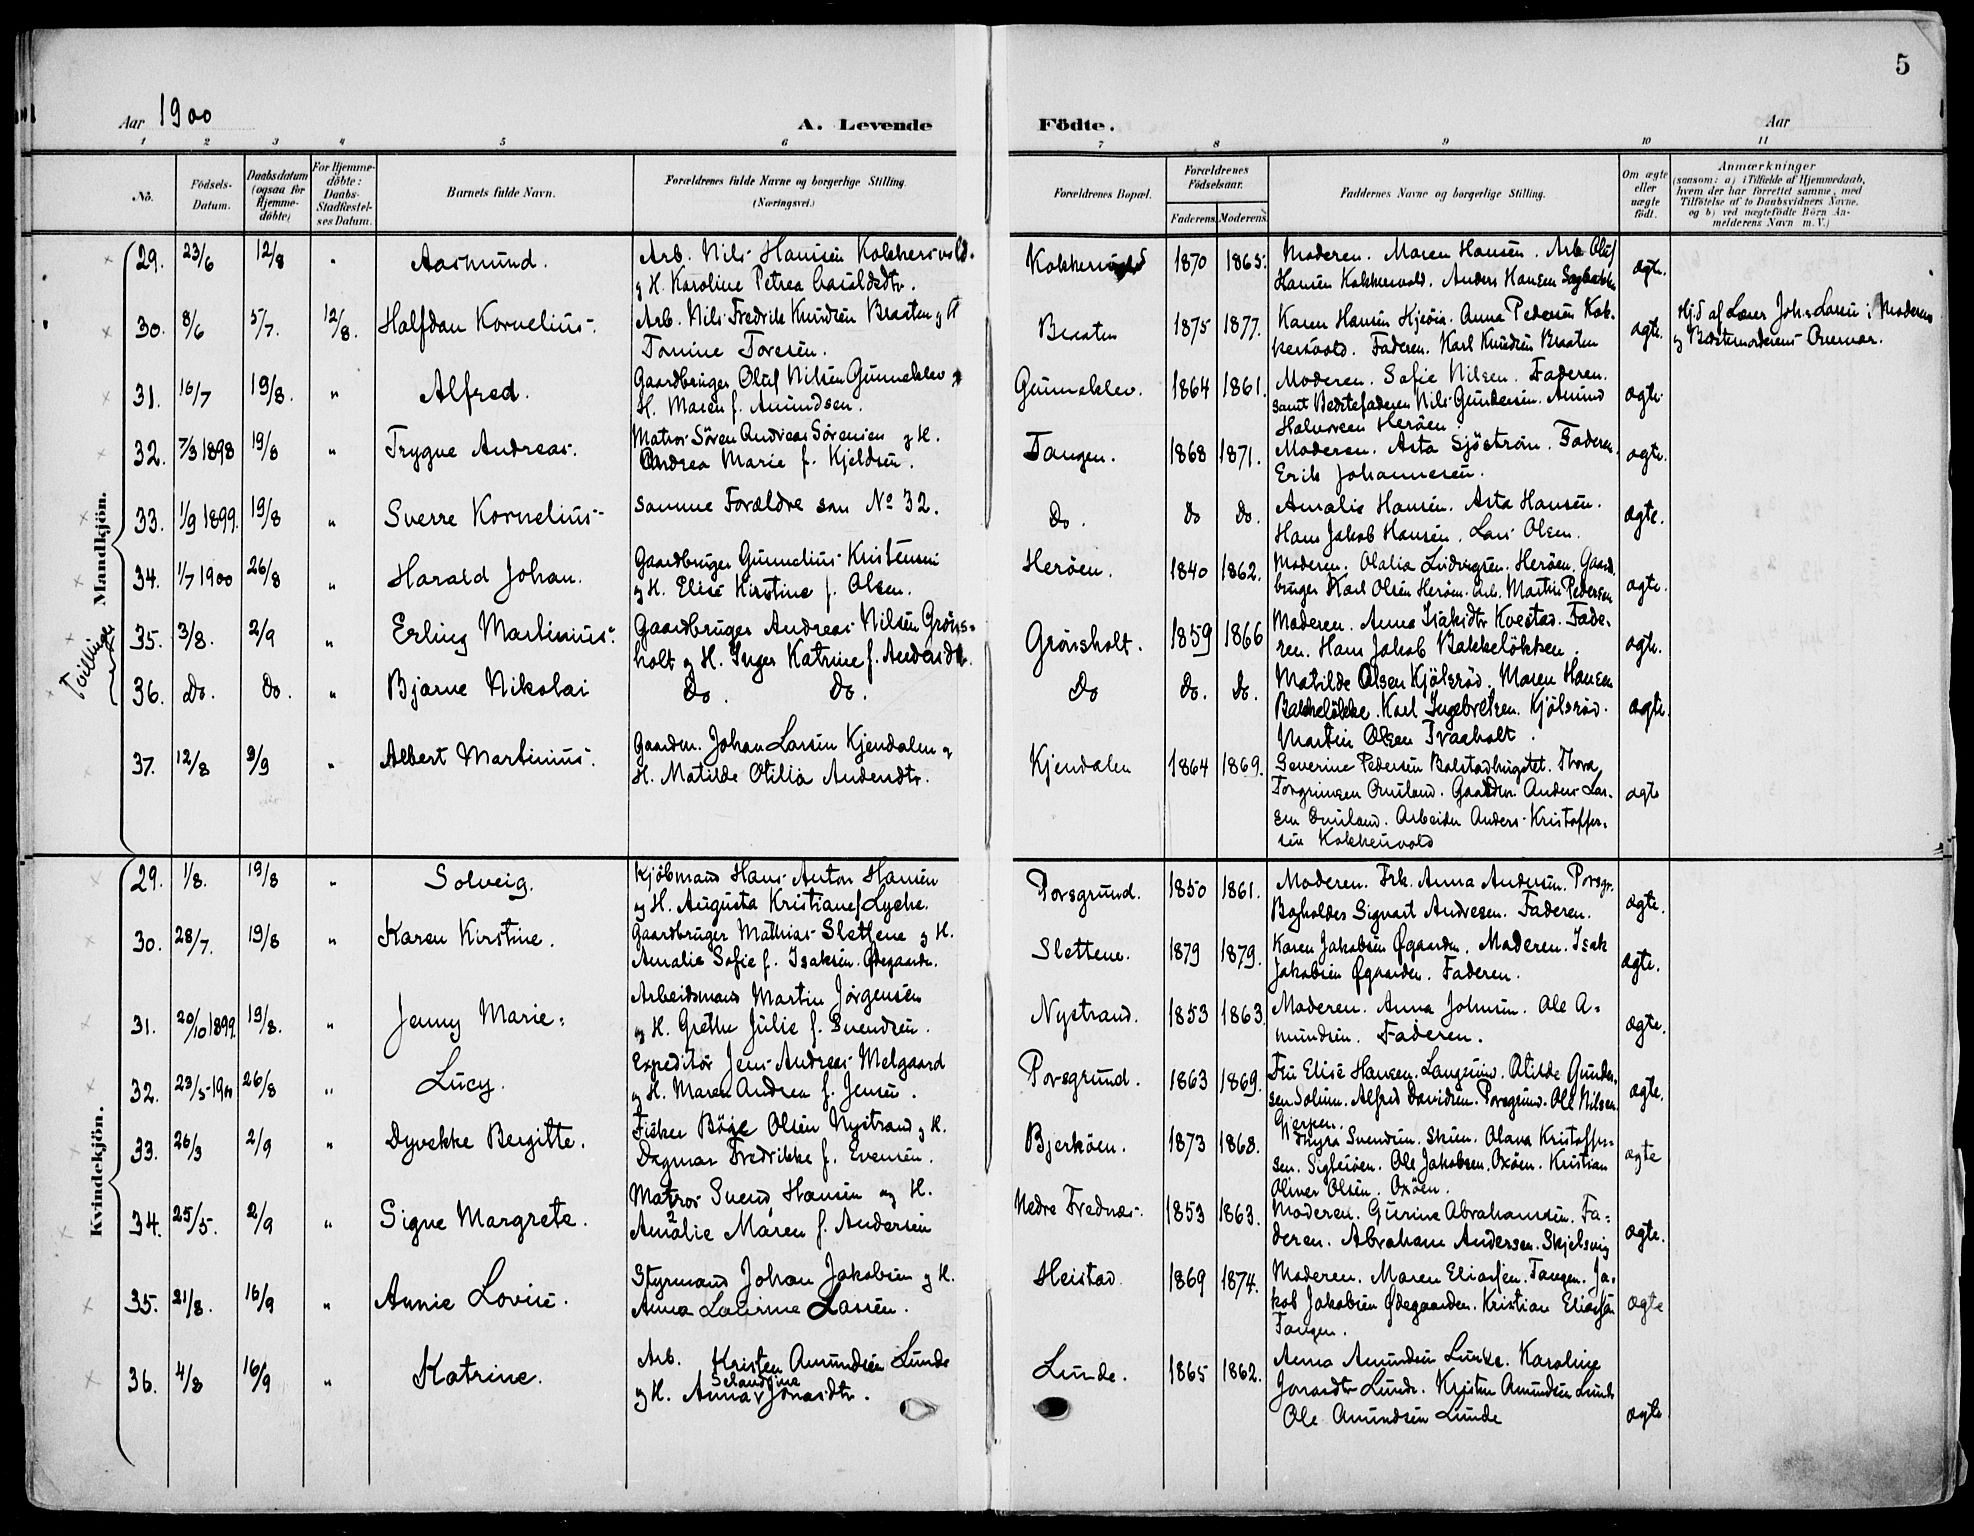 5
Aar 1900
A. Levende Födte.
Aar
1 2 3 4 5 6 7 8 9 10 11
No.
Födsels-Datum.
Daabsdatum (ogsaa for Hjemme-döbte)
For Hjemme-döbte: Daabs-Stadfæstel-ses Datum.
Barnets fulde Navn.
Forældrenes fulde Navne og borgerlige Stilling. (Næringsvei.)
Forældrenes Bopæl.
Forældrenes Födselsaar.
Faderens. Moderens.
Faddernes Navne og borgerlige Stilling.
Om ægte eller uægte födt.
Anmærkninger
(saasom: a) i Tilfælde af Hjemmedaab,
hvem der har forrettet samme, med
Tilföielse af to Daabsvidners Navne.
og b) ved uægtefödte Börn An-
melderens Navn m. V.)
Mandkjön.
29. 23/6 12/8 " Aasmund. Arb. Nils Hansen Kokkersvold. Kokkersvold 1870 1865. Moderen. Maren Hansen. Arb. Oluf ægte.
g H. Karoline Petrea Haraldsdtr. Hansen Kokkersvold. Anders Hansen Sagbakken
30. 8/6 5/7. 12/8. Halfdan Kornelius. Arb. Nils Fredrik Knudsen Braaten g H Braaten 1875 1877. Karen Hansen Hjerøia. Anna Pedersen Kok- ægte. Hj.d af Lærer Joh. Larsen i Moderens
Tomine Toresen. kersvold. Faderen. Karl Knudsen Braaten g Bedstemoderens Overvær.
31. 16/7 19/8. " Alfred. Gaardbruger Oluf Nilsen Gunneklev g Gunneklev. 1864 1861. Moderen. Sofie Nilsen. Faderen. ægte.
H. Maren f. Amundsen. samt Bedstefaderen Nils Gundersen. Amund
Halvorsen Herøen.
32. 7/3 1898 19/8 " Trygve Andreas. Matros Sören Andreas Sörensen g H. Tangen. 1868 1871. Moderen. Asta Sjöström. Faderen. ægte.
Andrea Marie f. Kjeldsen. Erik Johannesen.
33. 1/9 1899. 19/8 " Sverre Kornelius. Samme Forældre som No 32. Do. Do Do. Amalie Hansen. Asta Hansen. ægte.
Hans Jakob Hansen. Lars Olsen.
34. 1/7 1900 26/8 " Harald Johan. Gaardbruger Gunnelius Kristensen Herøen. 1840 1862. Moderen. Olalia Ludvigsen. Herøen. Gaard- ægte.
g H. Elise Kirstine f. Olsen. bruger Karl Olsen Herøen. Arb. Martin Pedersen
Tvillinger
35. 3/8. 2/9 " Erling Martinius. Gaardbruger Andreas Nilsen Grøns- Grønsholt. 1859 1866 Moderen. Anna Isaksdtr Kvestad. Fade- ægte.
holt g H. Inger Katrine f. Andersdtr. ren. Hans Jakob Bakkeløkken.
36. Do. Do. " Bjarne Nikolai Do. Do. Do Do. Do. Matilde Olsen Kjölsröd. Maren Hansen ægte.
Bakkeløkke. Karl Ingebretsen. Kjölsröd.
Martin Olsen Traaholt.
37. 12/8 9/9 " Albert Martinius. Gaardm. Johan Larsen Kjendalen g Kjendalen 1864 1869. Severine Pedersen Balstadbugstet. Thora ægte
H. Matilde Otilia Andersdtr. Torgrimsen Ønnland. Gaardm. Anders Lar-
sen Ønnland. Arbeider Anders Kristoffer-
sen Kokkersvold
Kvindekjön.
29. 1/8. 19/8 " Solveig. Kjöbmand Hans Anton Hansen Porsgrund. 1850 1861. Moderen. Frk. Anna Andersen. Porsgr. ægte.
g H. Augusta Kristiane f. Lyche. Bogholder Sigvart Andresen. Faderen.
30. 28/7. 19/8 " Karen Kirstine. Gaardbruger Mathias Slettene g H. Slettene. 1879 1879. Karen Jakobsen Øgaarden. Moderen. Isak ægte.
Amalie Sofie f. Isaksen. Ødegaarden. Jakobsen Øgaarden. Faderen.
31. 20/10 1899. 19/8. " Jenny Marie. Arbeidsmand Martin Jørgensen Nystrand. 1853 1863. Moderen. Anna Johnsen. Ole A- ægte.
g H. Grethe Julie f. Svendsen. mundsen. Faderen.
32. 23/5 1900 26/8 " Lucy. Expeditör Jens Andreas Melgaard Porsgrund. 1863 1869. Fru Elise Hansen. Langesund. Otilde Gunder- ægte.
g H. Maren Andrea f. Jensen. sen Solum. Alfred Davidsen. Porsgrund. Ole Nilsen
Gjerpen.
33. 26/3 2/9 " Dyvekke Bergitte. Fisker Böye Olsen Nystrand g H. Bjerkøen. 1873 1868. Thyra Svendsen. Skien. Olava Kristoffer- ægte
Dagmar Fredrikke f. Evensen. sen. Siglesøen. Ole Jakobsen. Oxøen. Kristian
Oliver Olsen. Oxøen.
34. 25/5. 2/9 " Signe Margrete. Matros Svend Hansen og H. Nedre Frednæs. 1853 1863. Moderen. Gurine Abrahamsen. Fa- ægte.
Amalie Maren f. Andersen deren. Abraham Andersen. Skjelsvig
35. 21/8. 16/9 " Annie Lovise. Styrmand Johan Jakobsen g H. Heistad. 1869 1874. Moderen. Maren Eliassen. Tangen. Ja- ægte
Anna Lavinne Larsen. kob Jakobsen Ødegaarden. Kristian Eliassen
Tangen.
36. 4/8 16/9 " Katrine. Arb. Kristen Amundsen Lunde Lunde. 1865 1862. Anna Amundsen Lunde. Karoline ægte
g H. Anna Selandine Jonasdtr. Jonasdtr Lunde. Kristen Amundsen Lunde
Ole Amundsen Lunde